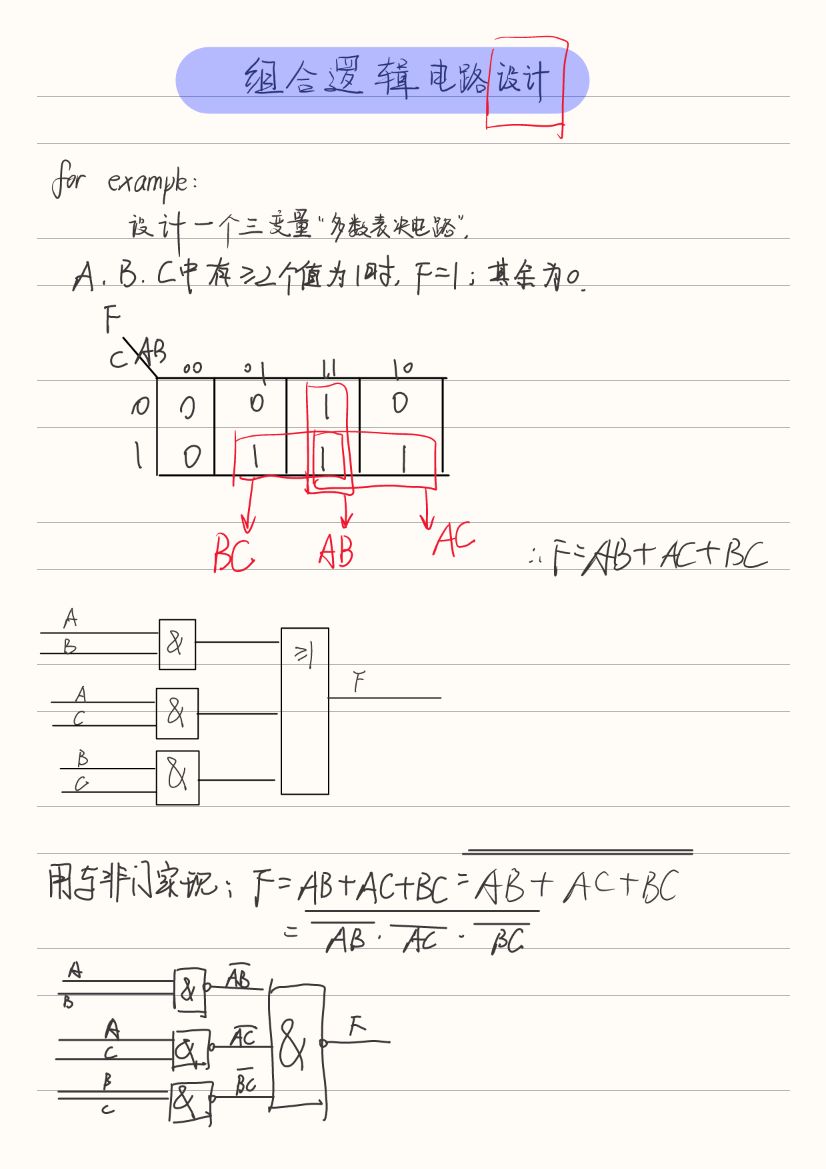 组合逻辑电路设计
for example:
设计一个三变量“多数表决电路”.
A.B.C中有≥2个值为1时, F=1; 其余为0.
F
C AB 00 01 11 10
0 0 0 1 0
1 0 1 1 1
BC AB AC
∴F=AB+AC+BC
A
B & ≥1
F
A
C &
B
C &
用与非门实现; F=AB+AC+BC=\overline{\overline{AB+AC+BC}}
=\overline{\overline{AB}·\overline{AC}·\overline{BC}}
A
B & \overline{AB}
A
C & \overline{AC} & F
B
C & \overline{BC}